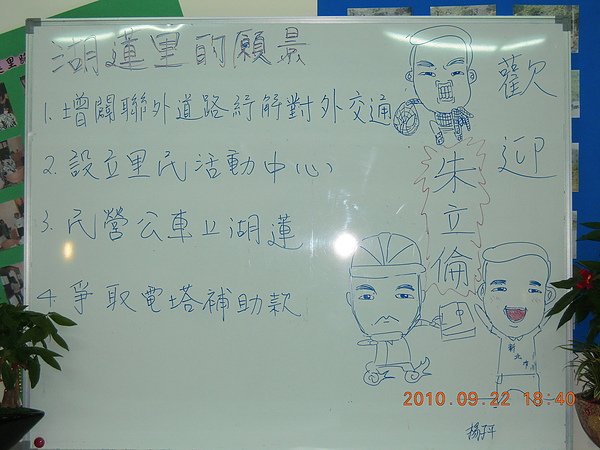 湖蓮里的願景
1. 增闢聯外道路紓解對外交通
2. 設立里民活動中心
3. 民營公車上湖蓮
4. 爭取電塔補助款
歡迎
朱立倫
新北市
2010.09.22 18:40